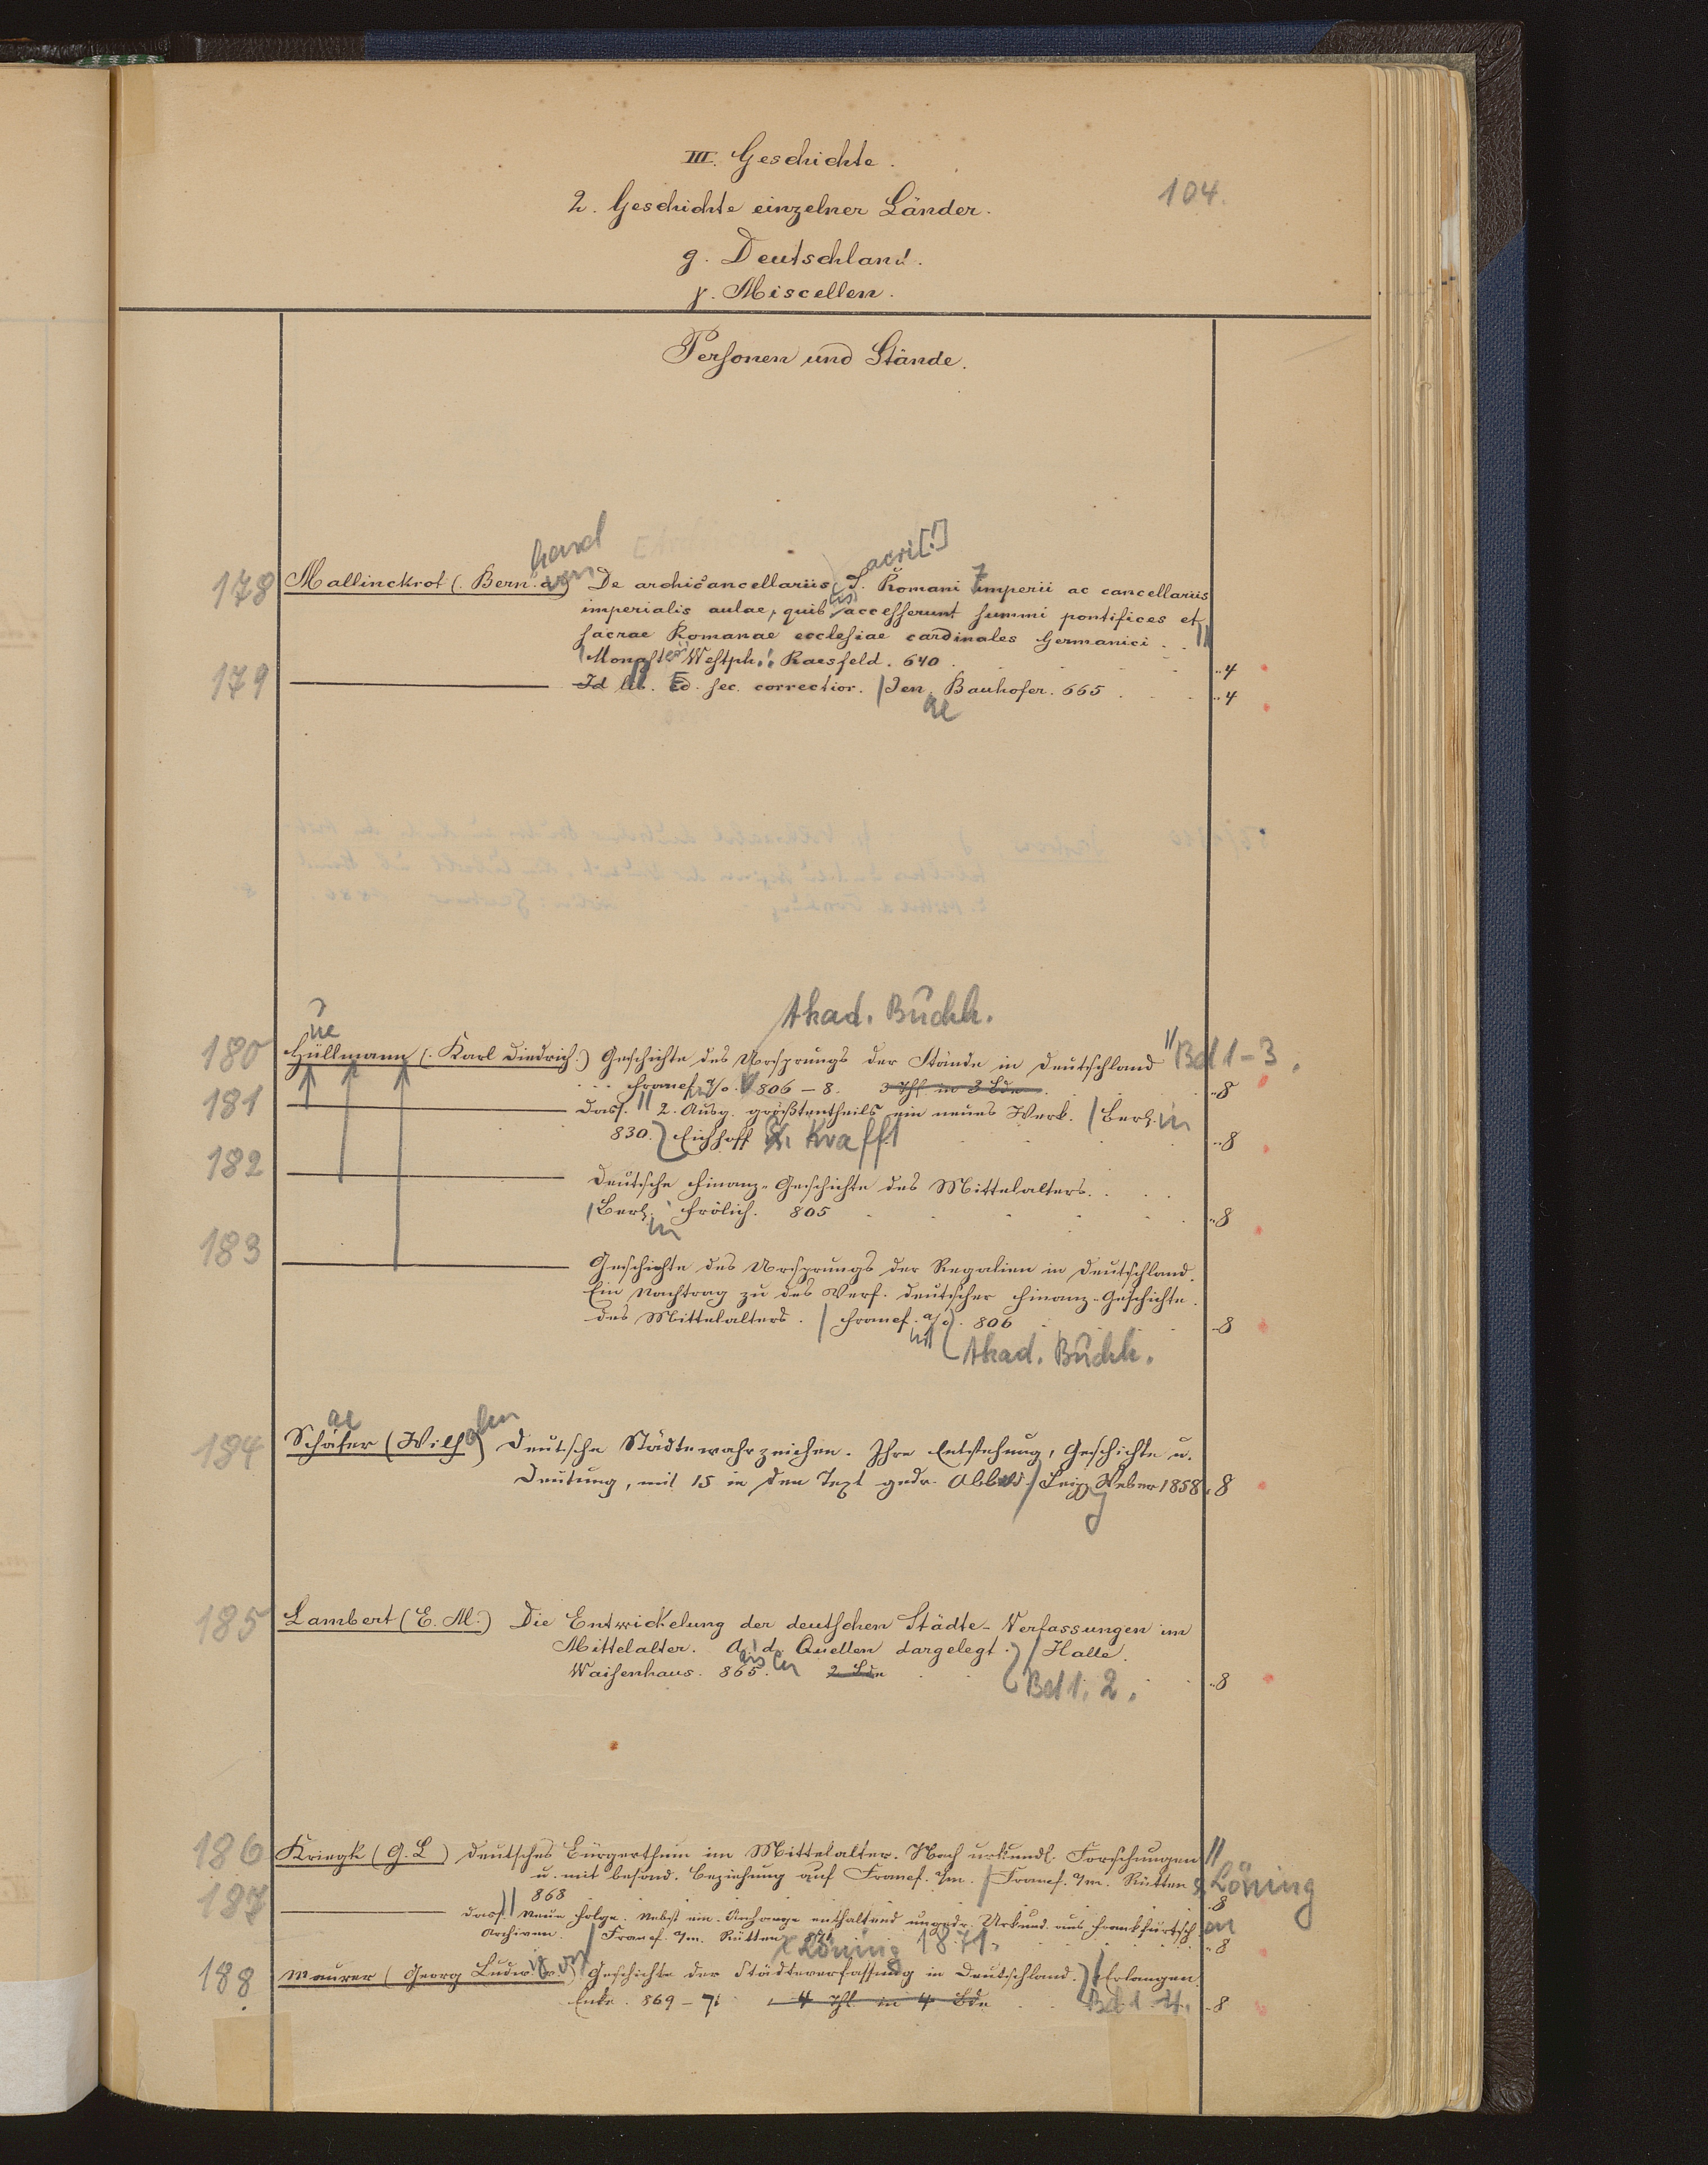 III. Geschichte.
2. Geschichte einzelner Länder.
104.
g. Deutschland.
γ. Miscellen.
Personen und Stände.
hard acri[!]
178 Mallinckrot (. Bern. a von) De archicancellariis S. Romani imperii ac cancellariis
imperialis aulae, quibus accesserunt summi pontifices et
sacrae Romanae ecclesiae cardinales Germanici . . ||
Monast. Westph.: Raesfeld. 640 . ..4
179 ——— Id lib. Ed. sec. correctior. | Jen. Bauhofer. 665 . ..4
ae
Akad. Buchh.
ue
180 Hüllmann (. Karl Diedrich.) Geschichte des Ursprungs der Stände in Deutschland || Bd 1-3.
Francf. a/o. 806 – 8. 3 Thl. in 3 Bde. ..8
181 ——— Dass. || 2. Ausg. größtentheils ein neues Werk. | Berl. in
830. Eichhoff & Krafft ..8
182 ——— Deutsche Finanz-Geschichte des Mittelalters. . . .
| Berl. in Frölich. 805 ..8
183 ——— Geschichte des Ursprungs der Regalien in Deutschland.
Ein Nachtrag zu des Verf. deutscher Finanz-Geschichte
des Mittelalters. | Francf. a/o. 806 ..8
Akad. Buchh.
ae elm
184 Schäfer (Wilh.) Deutsche Städtewahrzeichen. Ihre Entstehung, Geschichte u.
Deutung, mit 15 in den Text gedr. Abbild. | Leipz. Weber 1858. 8
g
185 Lambert (E. M.) Die Entwickelung der deutschen Städte-Verfassungen im
Mittelalter. Aus d. Quellen dargelegt. | Halle.
Waisenhaus. 865. 2 Bde Bd 1. 2. ..8
186 Kriegk (G. L) Deutsches Bürgerthum im Mittelalter. Nach urkundl. Forschungen ||
u. mit besond. Beziehung auf Francf. a/m. | Francf. a/m. Rütten & Löning
868 ..8
187 ——— Dass. || Neue Folge. Nebst ein. Anhange enthaltend ungedr. Urkund. aus Frankfurtsch. en
Archiven. | Francf. a/m. Rütten & Löning 1871. ..8
188 Maurer (Georg Ludwig von) Geschichte der Städteverfassung in Deutschland. | Erlangen.
Enke. 869 – 71 4 Thl in 4 Bde Bd 1-4. ..8